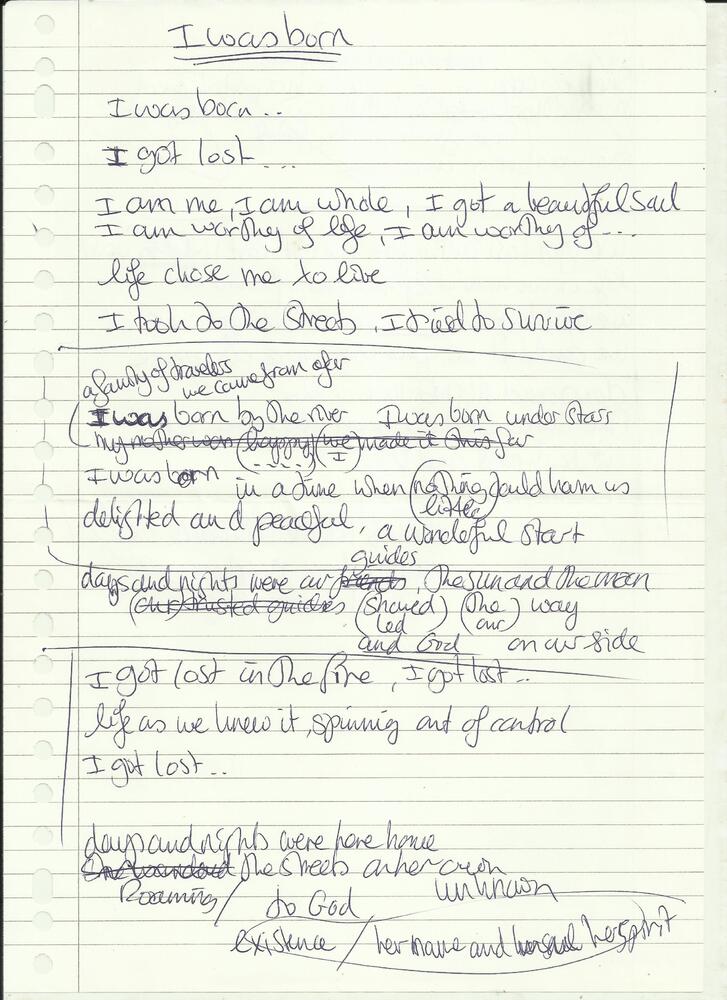 I was born
I was born..
I got lost....
I am me, I am whole, I got a beautiful soul
I am worthy of life, I am worthy of....
life chose me to live
I took to the streets, I tried to survive
a family of travelers
we came from afar
I was born by the river I was born under stars
my mother was (happy) (we) made it this far
I
I was born in a time when (nothing) could harm us
little
delighted and peaceful, a wonderful start
guides
days and nights were our friends, the sun and the moon
(our) trusted guides (showed) (the) way
led our
and God on our side
I got lost in the fire, I got lost..
life as we knew it, spinning out of control
I got lost..
days and nights were here home
She wandered the streets on her own
Roaming / to God unknown
existence / her name and her soul her spirit